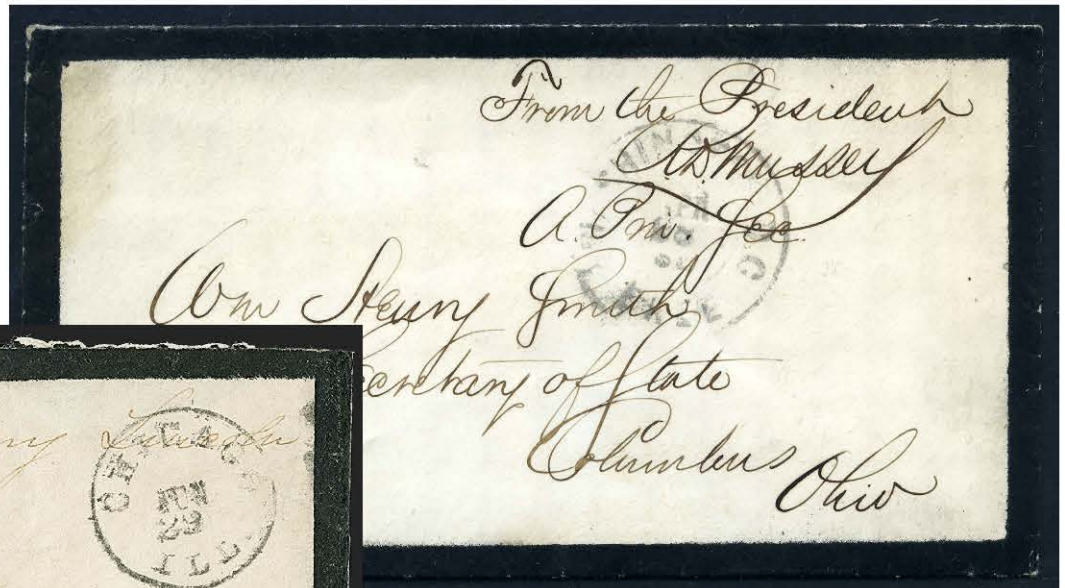 From the President
R.D. Mussey
A. Priv. Sec.
Wm Henry Smith
Secretary of State
Columbus
Ohio
Lincoln
CHICAGO
JUN
29
ILL.